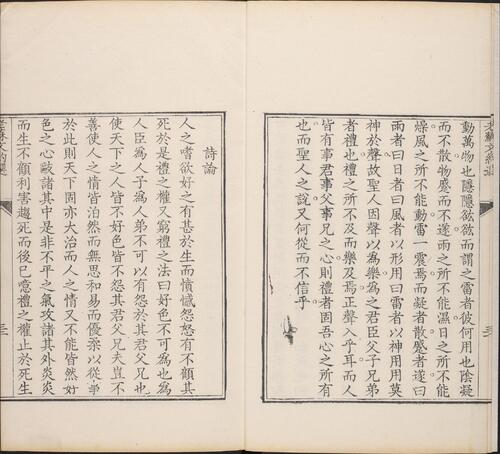 動萬物也隱隱谹谹而謂之雷者彼何用也陰凝
而不散物蹙而不遂雨之所不能濕日之所不能
燥風之所不能動雷一震焉而凝者散蹙者遂曰
雨者曰日者曰風者以形用曰雷者以神用用莫
神於聲故聖人因聲以為樂為之君臣父子兄弟
者禮也禮之所不及而樂及焉正聲入乎耳而人
皆有事君事父事兄之心則禮者固吾心之所有
也而聖人之說又何從而不信乎
詩論
人之嗜欲好之有甚於生而憤憾怨怒有不顧其
死於是禮之權又窮禮之法曰好色不可為也為
人臣為人子為人弟不可以有怨於其君父兄也
使天下之人皆不好色皆不怨其君父兄夫豈不
善使人之情皆泊然而無思和易而優柔以從事
於此則天下固亦大治而人之情又不能皆然好
色之心敺諸其中是非不平之氣攻諸其外炎炎
而生不顧利害趨死而後已噫禮之權止於死生